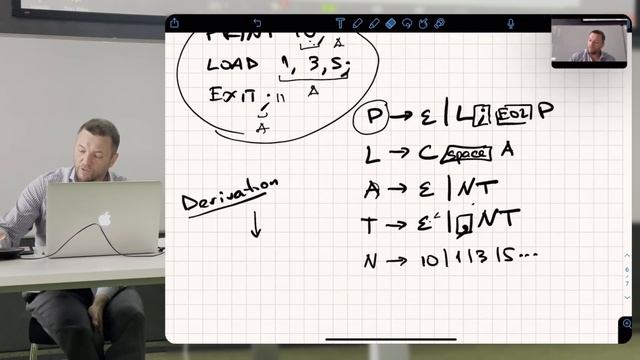 PRINT 10; A
LOAD 1, 3, 5;
A
EXIT ; "
A
Derivation
P → ε | L ; EOL P
L → C space A
A → ε | NT
T → ε | , NT
N → 10 | 1 | 3 | 5 ...
6 / 7